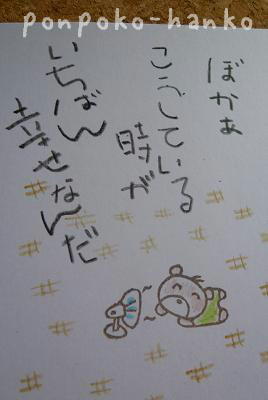 ponpoko-hanko
ぼかぁ
こうしている
時が
いちばん
幸せなんだ